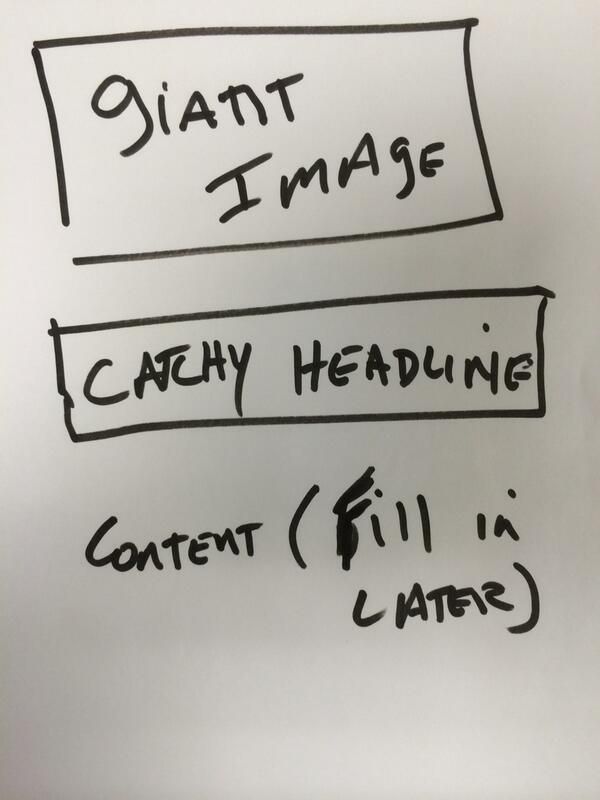 GIANT
IMAGE
CATCHY HEADLINE
CONTENT (Fill in
LATER)